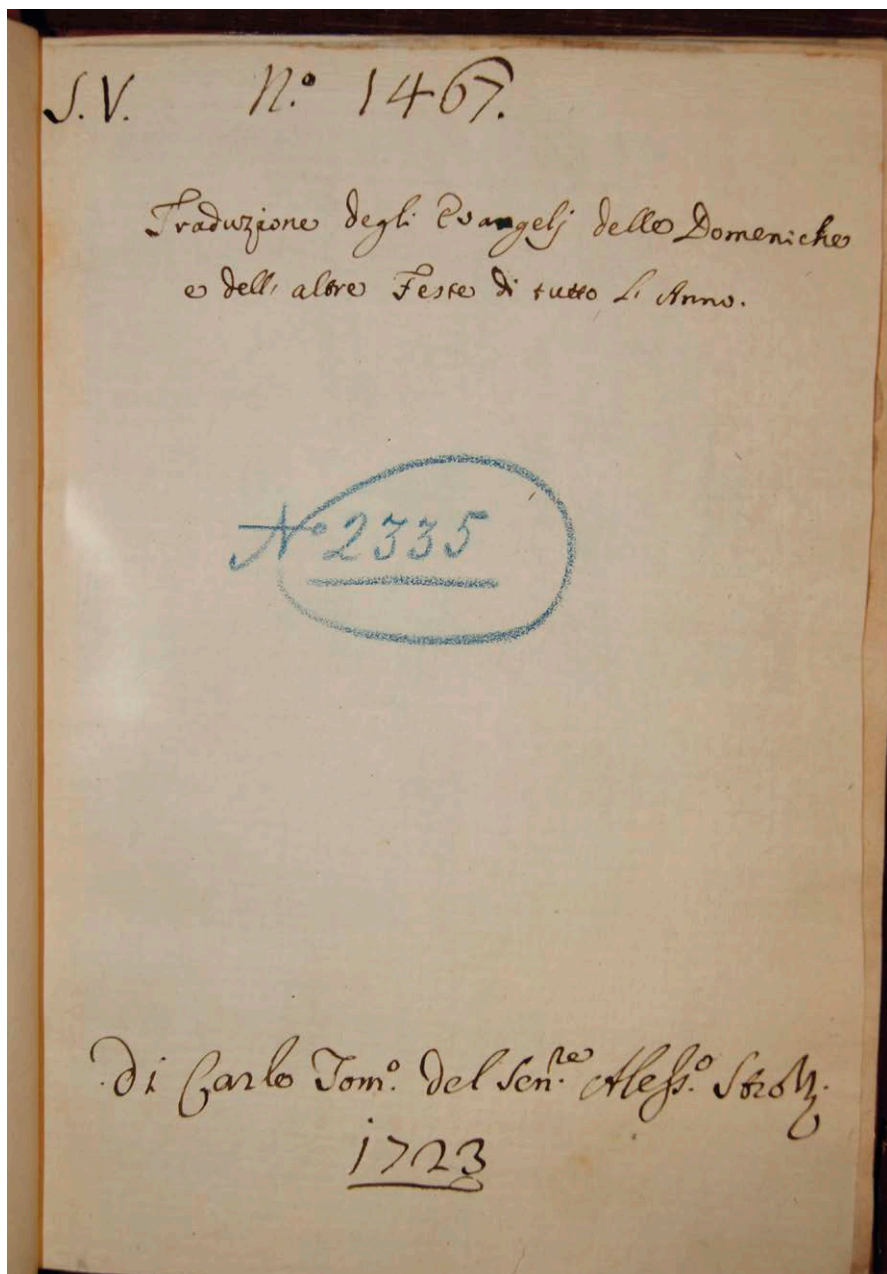 S.V. N.º 1467.
Traduzione degli Evangelj delle Domeniche
e dell' altre Feste di tutto L' Anno.
Nº 2335
di Carlo Tomº. del Sen.re Aless.º Strozz.
1723